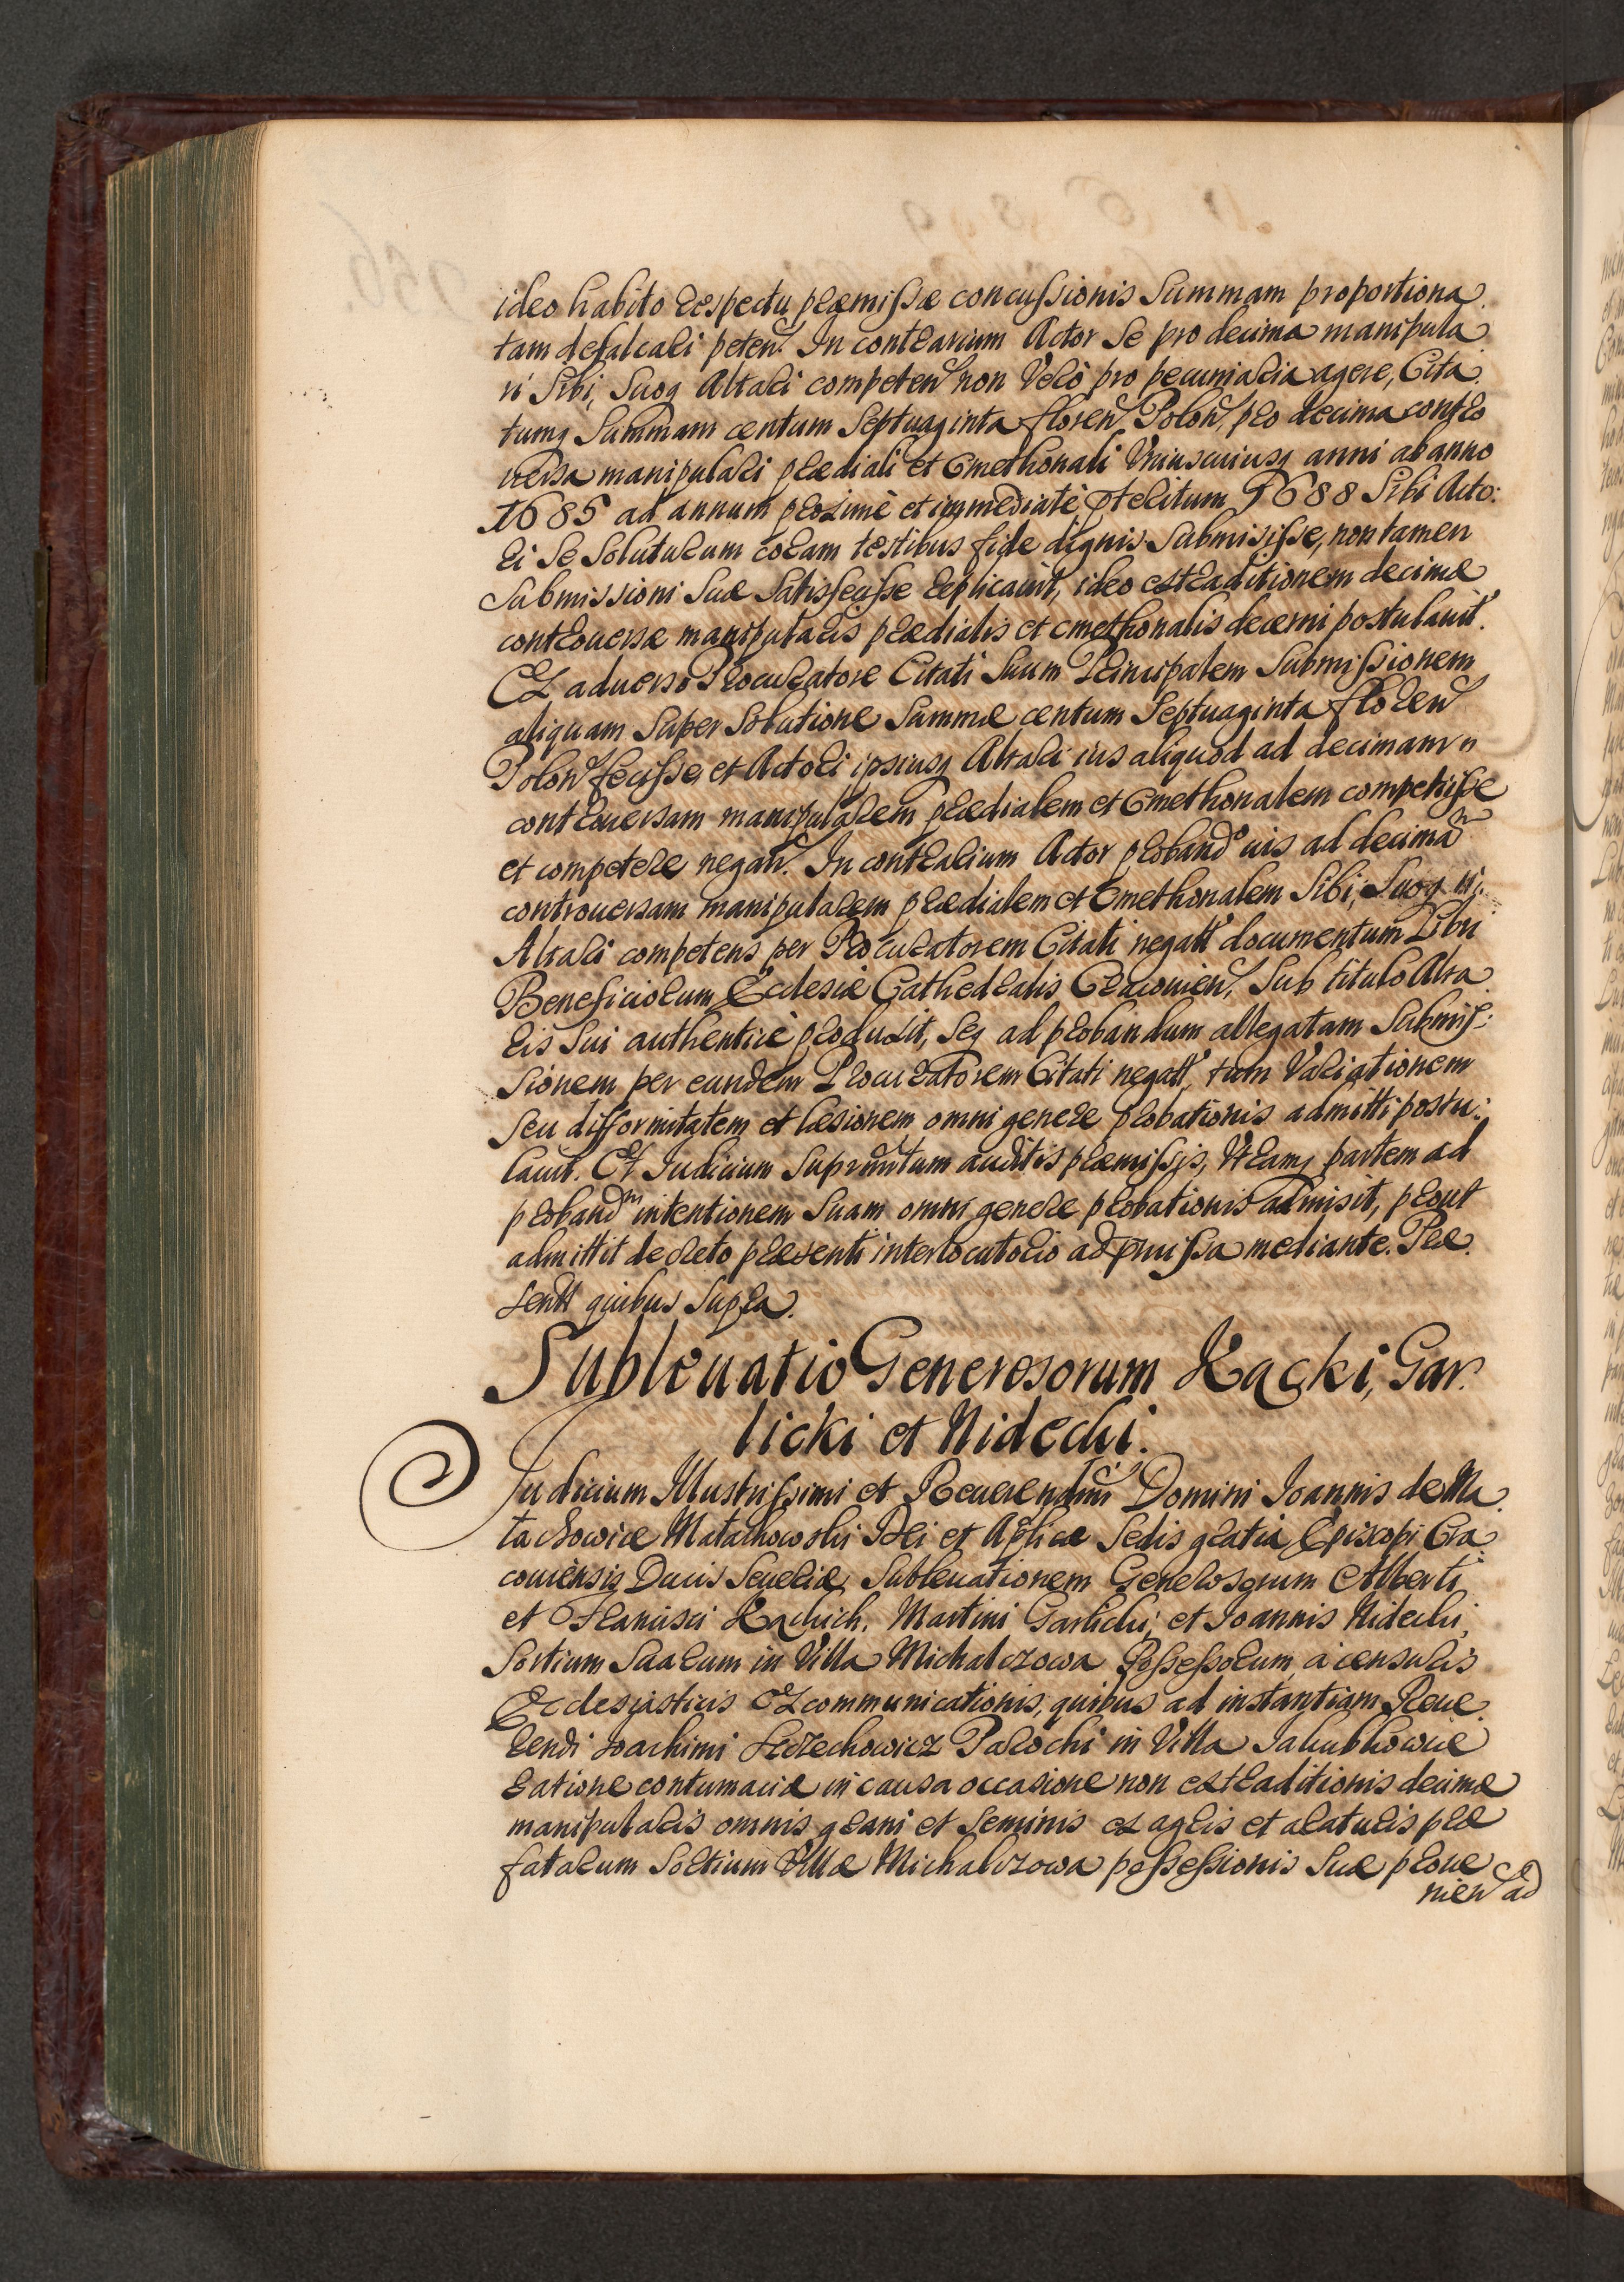 ideo habito respectu præmissæ concussionis Summam proportiona
tam defalcari peten. In contrarium Actor Se pro decima manipula
ri Sibi, Suoq Altari competen non Verò pro pecuniaria agere, Cita
tumq Summam centum Septuaginta floren Polon, pro decima contro
versa manipulari prædiali et Cmethonali Vniuscuiusq anni ab anno
1685 ad annum proximè et immediatè ptæritum 1688 Sibi Acto:
ri Se Soluturum coram testibus fide dignis Submisisse, non tamen
Submissioni Suæ Satisfecisse replicauit, ideo extraditionem decimæ
controuersæ manipularis prædialis et cmethonalis decerni postulauit.
Ex aduerso Procuratore Citati Suum Principalem Submissionem
aliquam Super Solutione Summæ centum Septuaginta floren
Polon fecisse, et Actori ipsiusq Altari ius aliquod ad decimam
controuersam manipularem prædialem et Cmethonalem competiisse
et competere negan. In contrarium Actor proband ius ad decimam
controuersam manipularem prædialem et Cmethonalem Sibi, Suoq
Altari competens per Procuratorem Citati negatt documentum Libri
Beneficiorum Ecclesiæ Cathedralis Cracouien, Sub titulo Alta
ris Sui authenticè produxit, Seq ad probandum allegatam Submis:
sionem per eundem Procuratorem Citati negatt, tum Variationem
Seu difformitatem et læsionem omni genere probationis admitti postu:
lauit. Et Iudicium Suprmtum auditis præmissis, Vtramq partem ad
proband intentionem Suam omni genere probationis admisit, prout
admittit decreto præsenti interlocutorio ad prmissa mediante. Præ
sentt quibus Supra.
Subleuatio Generosorum Kącki, Gar
licki et Nidecki.
Iudicium Illustrissimi et Reuerendmi Domini Ioannis de Ma
łachowice Małachowski Dei et Aplicæ Sedis gratia Episcopi Cra
couiensis Ducis Seueriæ, Subleuationem Generosorum Alberti
et Francisci Kąckich, Martini Garlicki, et Ioannis Nidecki,
Sortium Suarum in Villa Michalczowa Possessorum, à censuris
Ecclesiasticis Excommunicationis, quibus ad instantiam Reue
rendi Ioachimi Parochi in Villa Iakubkowice
ratione contumaciæ in causa occasione non extraditionis decimæ
manipularis omnis grani et Seminis ex agris et araturis præ
fatarum Sortium Villæ Michalczowa possessionis Suæ proue
nien ad